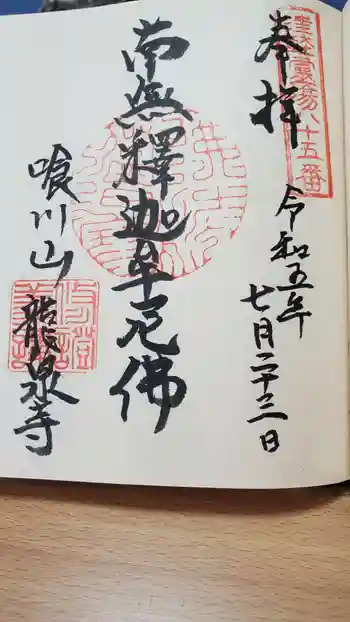 霊場八十五番
奉拝
令和五年
七月二十三日
南無釋迦牟尼佛
喰川山
龍泉寺